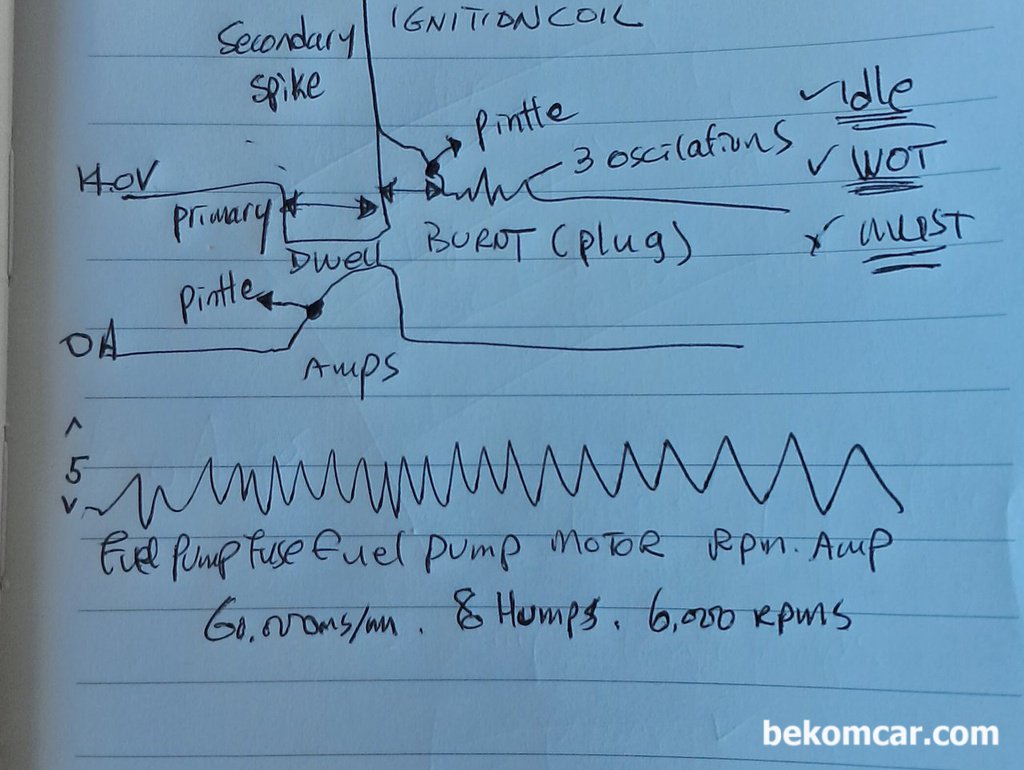 IGNITION COIL
Secondary
spike
pintle
Idle
3 oscilations
WOT
14.0V
primary
BURNT (plug)
Dwell
pintle
0A
Amps
5
fuel pump fuse fuel pump MOTOR Rpm. Amp
60.000ms/m. 8 Humps. 6,000 RPMS
bekomcar.com